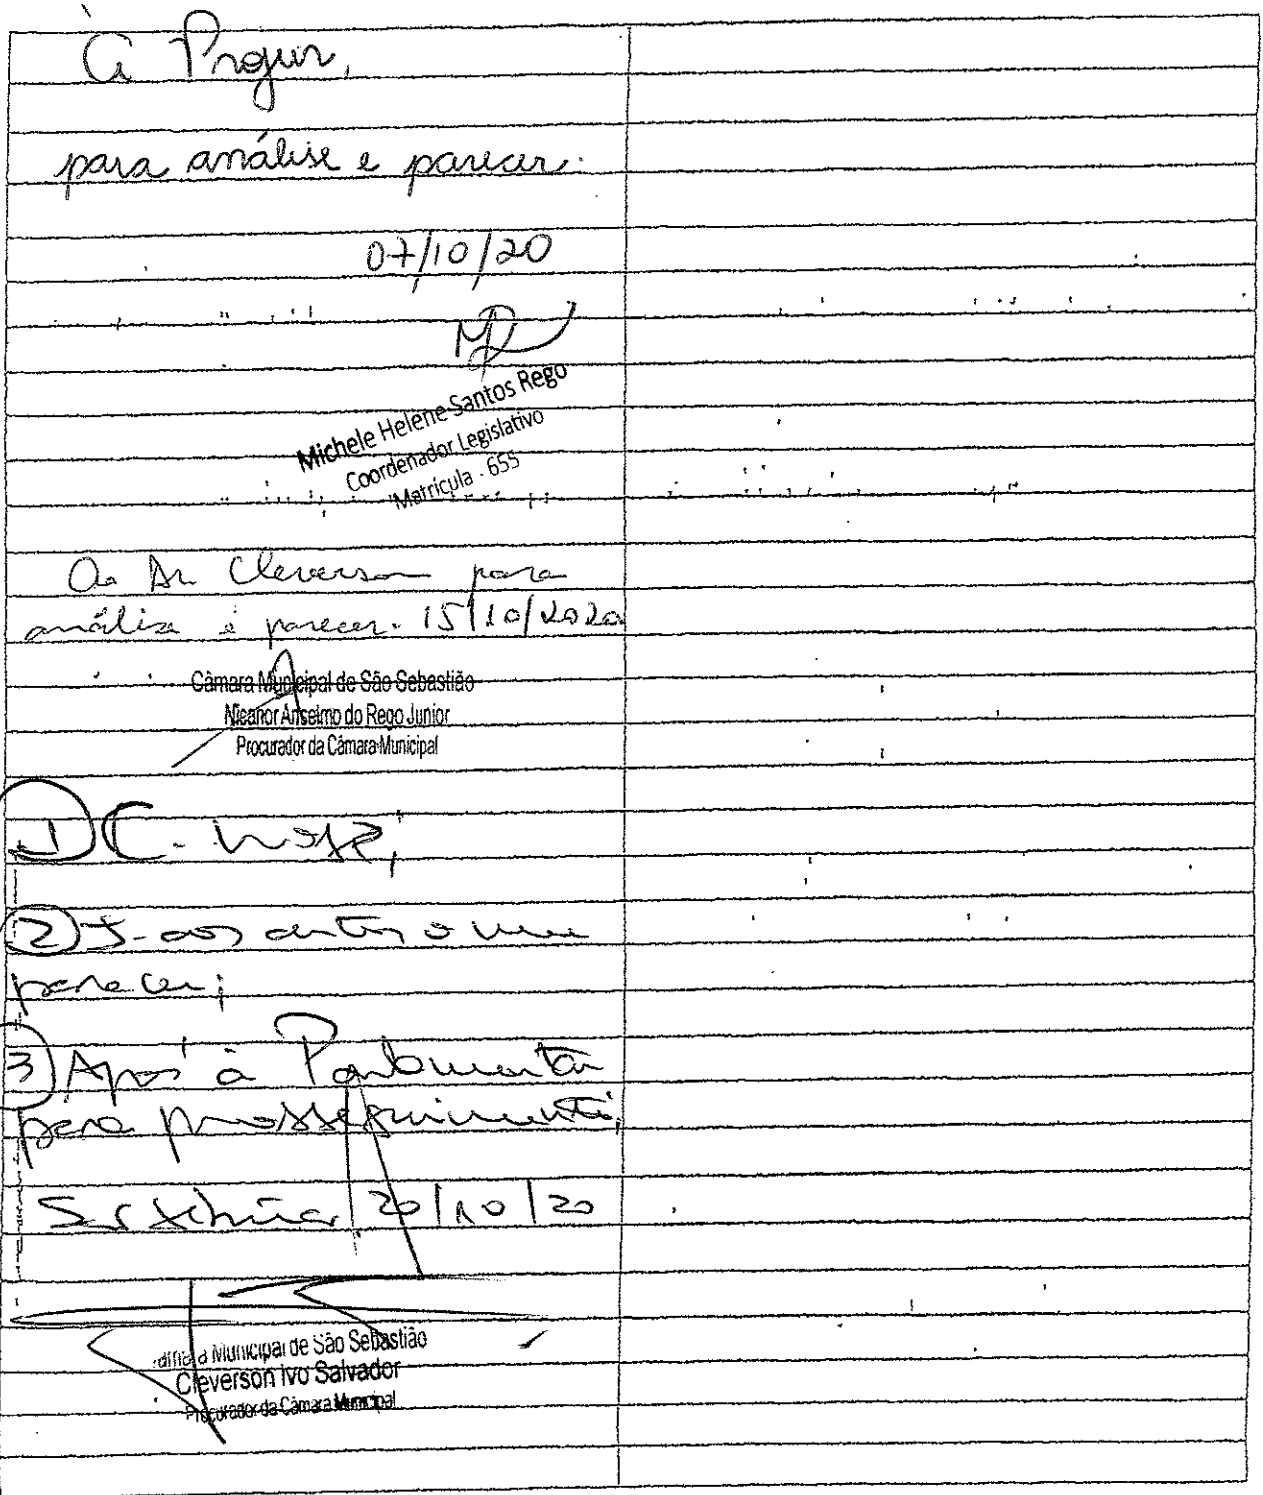 À Projur,
para análise e parecer.
07/10/20
Michele Helene Santos Rego
Coordenador Legislativo
Matrícula - 655
Ao Dr. Cleverson para
análise e parecer. 15/10/2020
Câmara Municipal de São Sebastião
Nicanor Anselmo do Rego Junior
Procurador da Câmara Municipal
1) C. hoje;
2) J. aos autos o meu
parecer;
3) Após à Parlamentar
para prosseguimento;
20/10/20
Municipal de São Sebastião
Cleverson Ivo Salvador
Procurador da Câmara Municipal